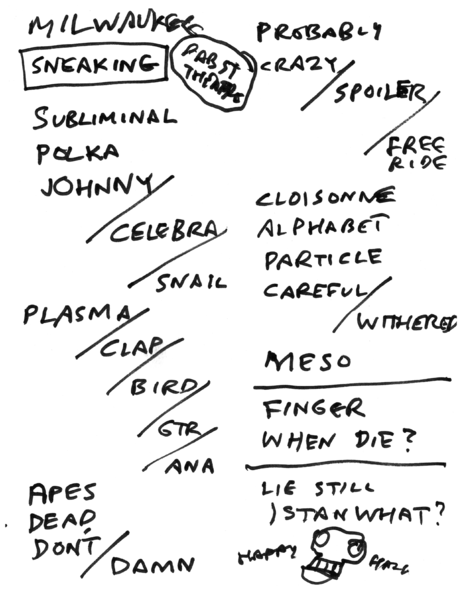 MILWAUKEE
SNEAKING
PABST
THEATRE
SUBLIMINAL
POLKA
JOHNNY/
CELEBRA/
SNAIL
PLASMA/
CLAP/
BIRD/
GTR/
ANA
APES
DEAD
DON'T/
DAMN
PROBABLY
CRAZY/
SPOILER/
FREE
RIDE
CLOISONNE
ALPHABET
PARTICLE
CAREFUL/
WITHERED
MESO
FINGER
WHEN DIE?
LIE STILL
ISTANWHAT?
HAPPY